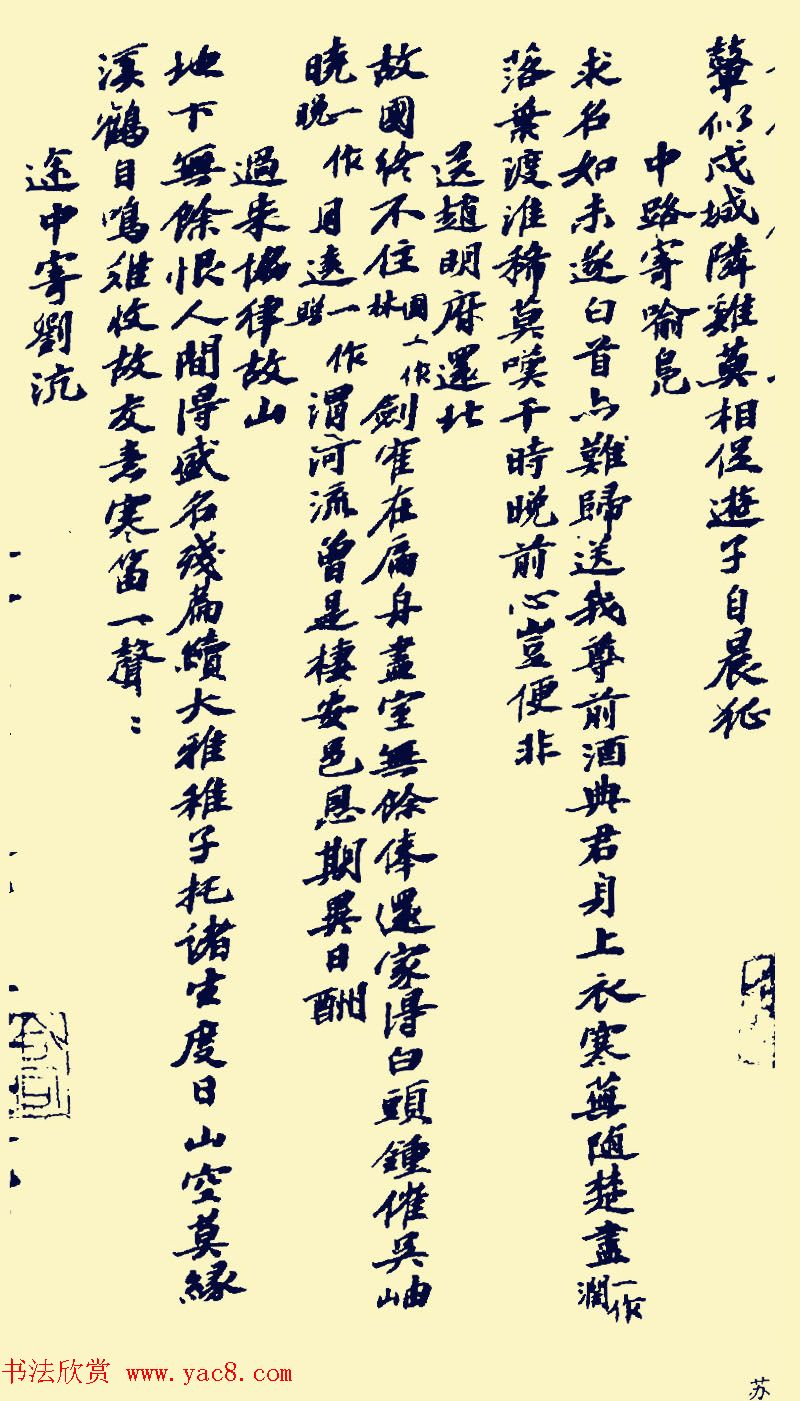 聲似戍城隣雞莫相促遊子自晨征
中路寄喻鳧
求名如未遂白首亦難歸送我尊前酒典君身上衣寒蕪隨楚盡一作澗
落葉渡淮稀莫嘆干時晚前心豈便非
送趙明府還北
故國終不住國一作林劍寉在扁舟盡室無餘俸還家得白頭鍾催吳岫
曉一作晚月遶一作照渭河流曾是棲安邑恩期異日酬
過朱協律故山
地下無餘恨人間得盛名殘篇續大雅稚子托諸生度日山空莫緣
溪鶴自鳴難收故友意寒笛一聲:
途中寄劉沇
书法欣赏 www.yac8.com
苏